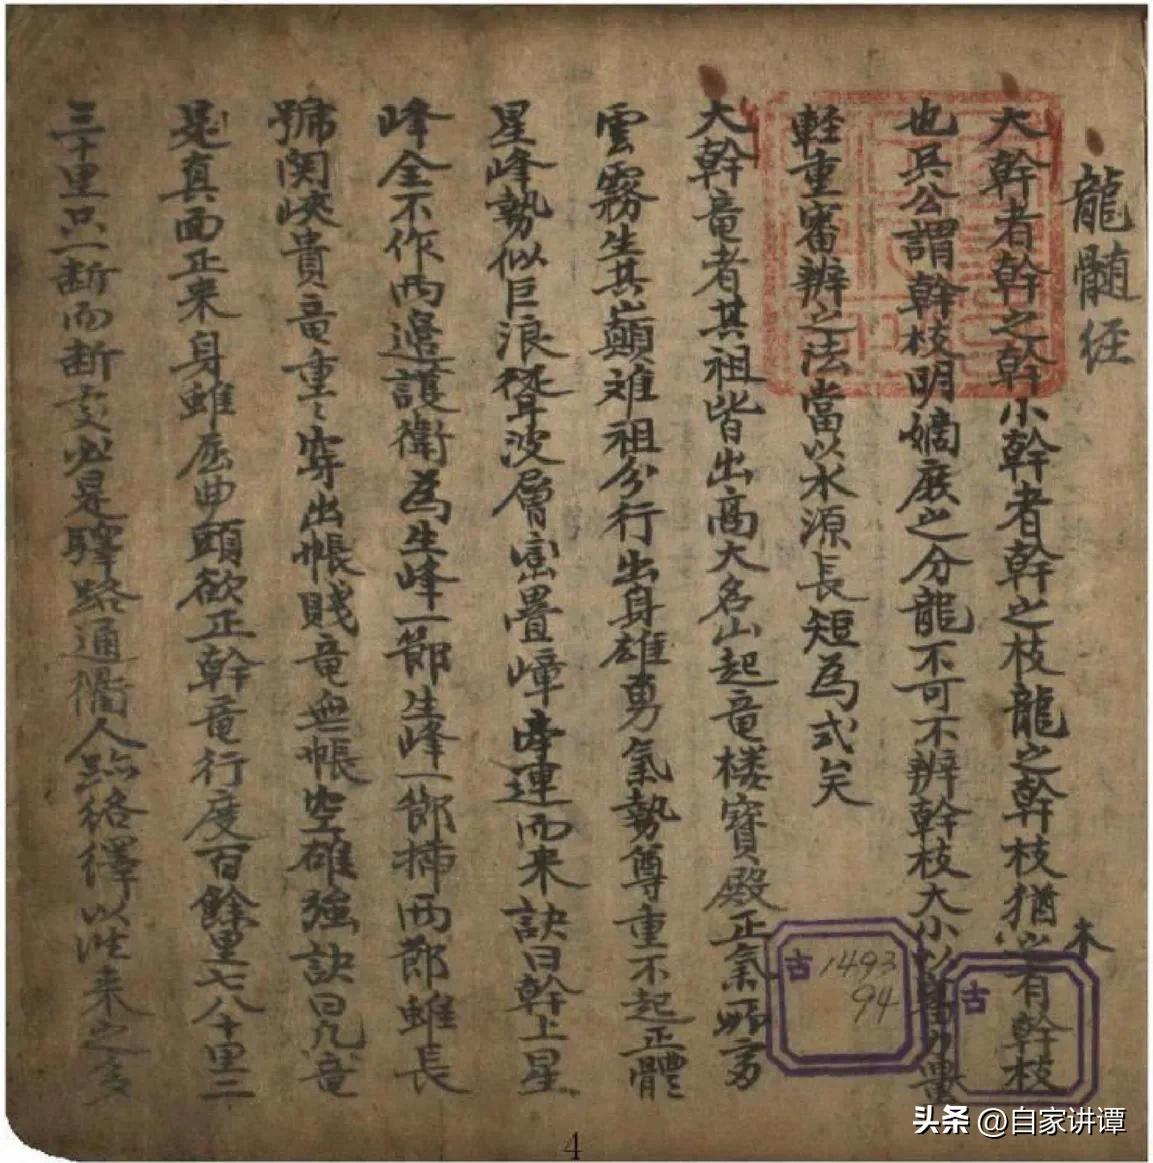 龍髓经
大幹者幹之幹小幹者幹之枝龍之幹枝猶木之有幹枝
也吳公謂幹枝明嫡庶之分龍不可不辨幹枝大小以量
軽重審辨之法當以水源長短為式矣
大幹竜者其祖皆出高大名山起竜楼寶殿正氣所多
雲霧生其巔难祖分行出身雄勇氣勢尊重不起正體
星峰勢似巨浪聳波層巒疊嶂牽連而来訣曰幹上星
峰全不作両邉護衛為生峰一節生峰一節插両節雖長
號関峽貴竜重〻穿出帳賤竜無帳空雄強訣曰凡竜
是真面正来身雖屈曲頭欲正幹竜行度百餘里七八十里二
三十里只一断而断处必是驛路通衢人跡絡繹以来之多
古 1493
94
古
4
头条 @自家讲谭